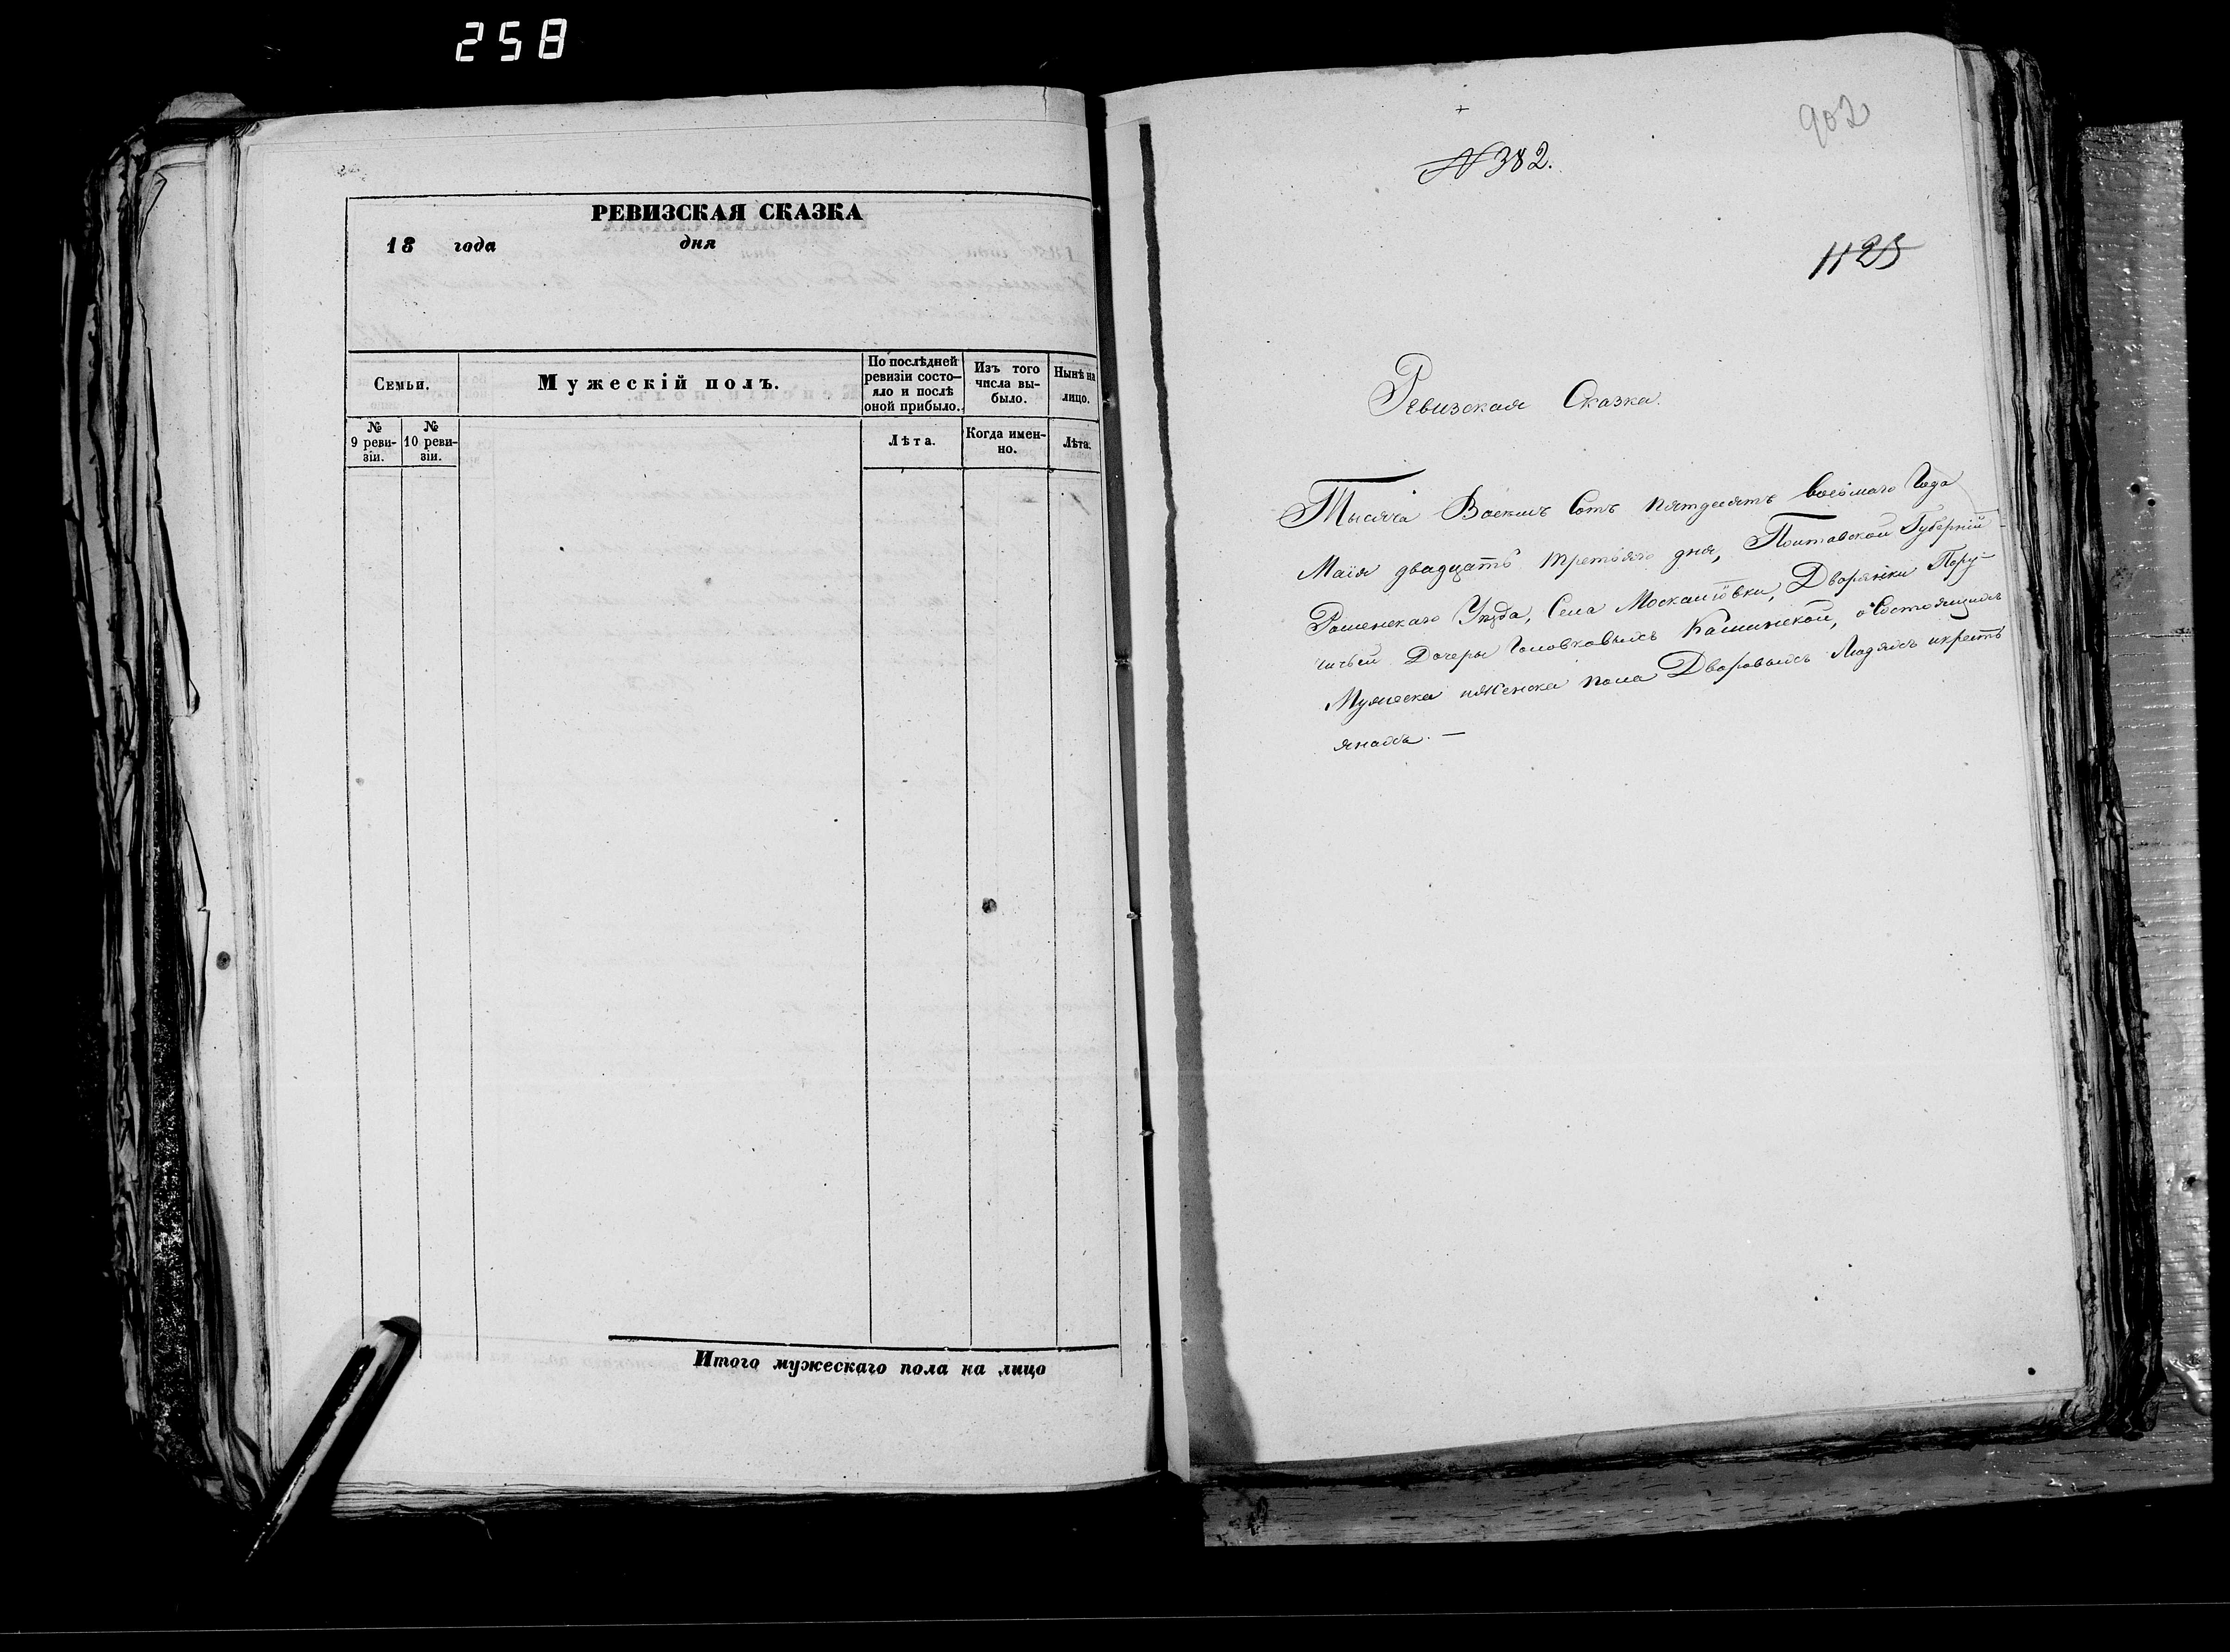 258
РЕВИЗСКАЯ СКАЗКА
18 года дня
Семьи.
Мужескій полъ.
По послѣдней ревизіи состояло и послѣ оной прибыло.
Изъ того числа выбыло.
Нынѣ на лицо.
№ 9 ревизіи.
№ 10 ревизіи.
Лѣта.
Когда именно.
Лѣта.
Итого мужескаго пола на лицо
902
№ 382.
1125
Ревизская Сказка.
Тысяча Восемь Сотъ пятдесятъ восьмаго Года
Маія двадцать третьяго дня, Полтавской Губерніи
Роменскаго Уѣзда, Села Москалiовки, Дворянки Пору-
чичьей Дочеры Головковымъ Калинской, о Состоящихъ
Мужеска иженска пола Дворовыхъ Людяхъ икресть
янахъ. —